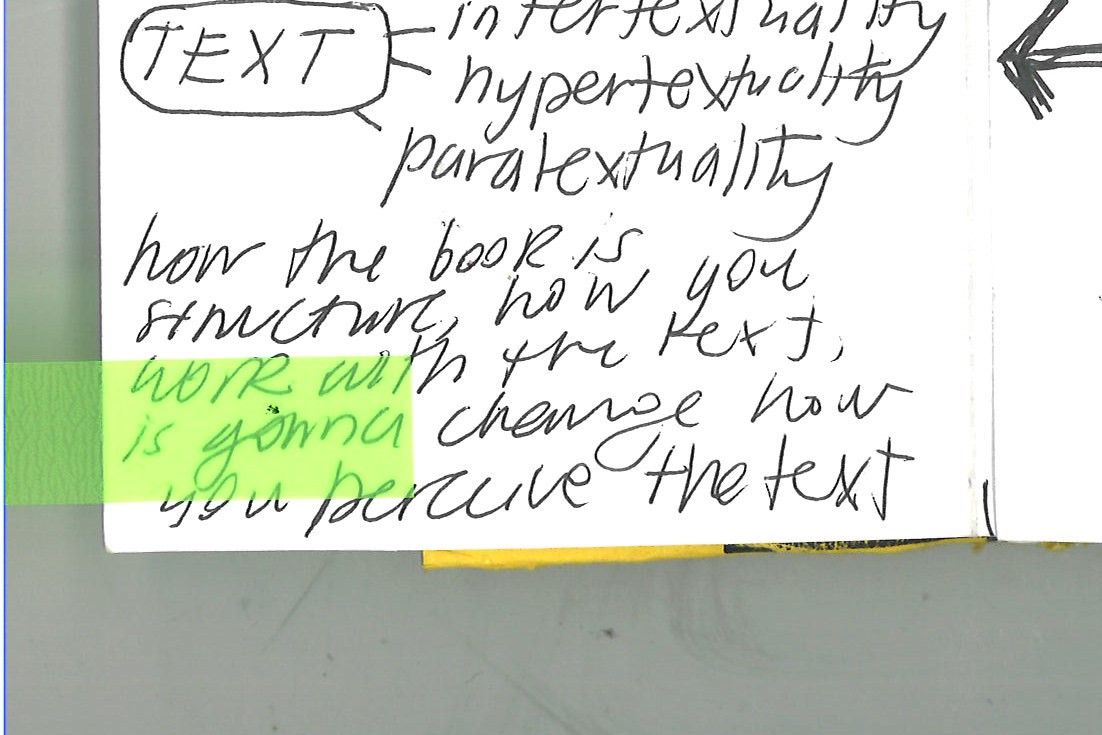 TEXT
intertextuality
hypertextuality
paratextuality
how the book is
structure, how you
work with the text,
is gonna change how
you perceive the text